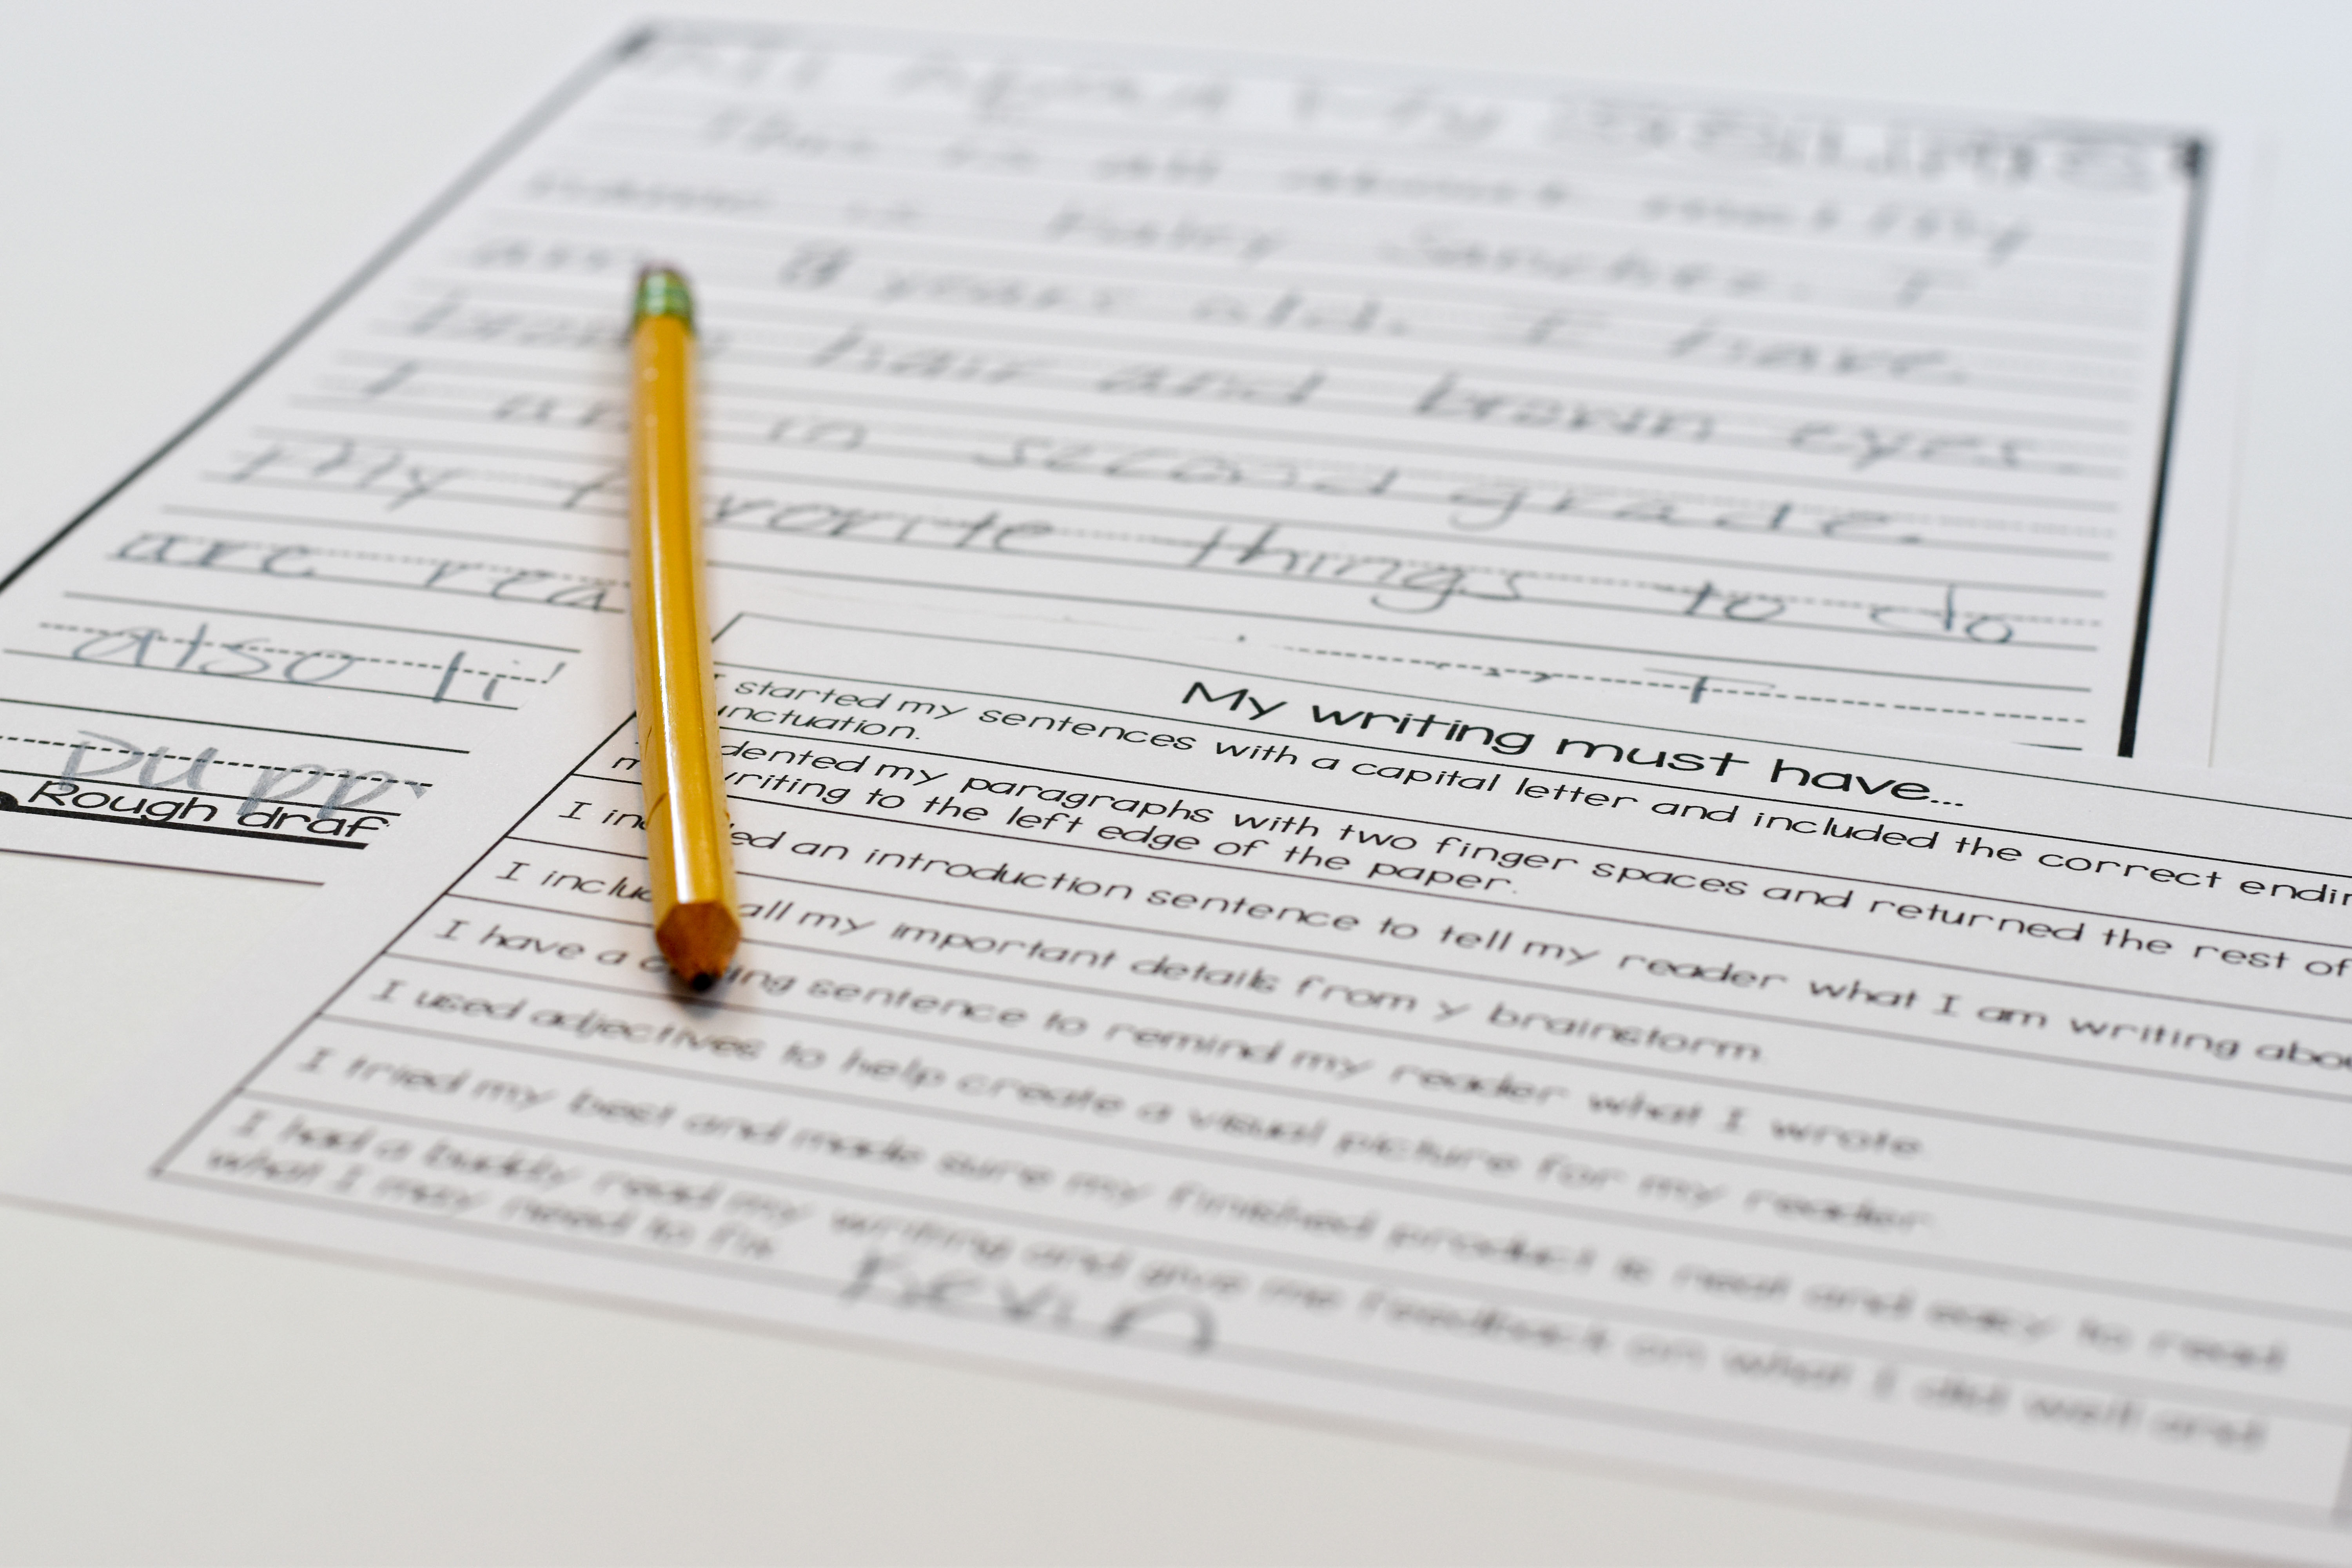 All About My
This is all about me! My
name is Haley Sanchez. I
am 8 years old. I have
brown hair and brown eyes.
I am in second grade.
My favorite things to do
are rea
also li
I
pupp
Rough draf
My writing must have...
I started my sentences with a capital letter and included the correct endin
unctuation.
dented my paragraphs with two finger spaces and returned the rest of
m writing to the left edge of the paper.
I in ed an introduction sentence to tell my reader what I am writing abou
I inclu all my important details from y brainstorm.
I have a c ing sentence to remind my reader what I wrote.
I used adjectives to help create a visual picture for my reader.
I tried my best and made sure my finished product is neat and easy to read.
I had a buddy read my writing and give me feedback on what I did well and
what I may need to fix.
Kevin